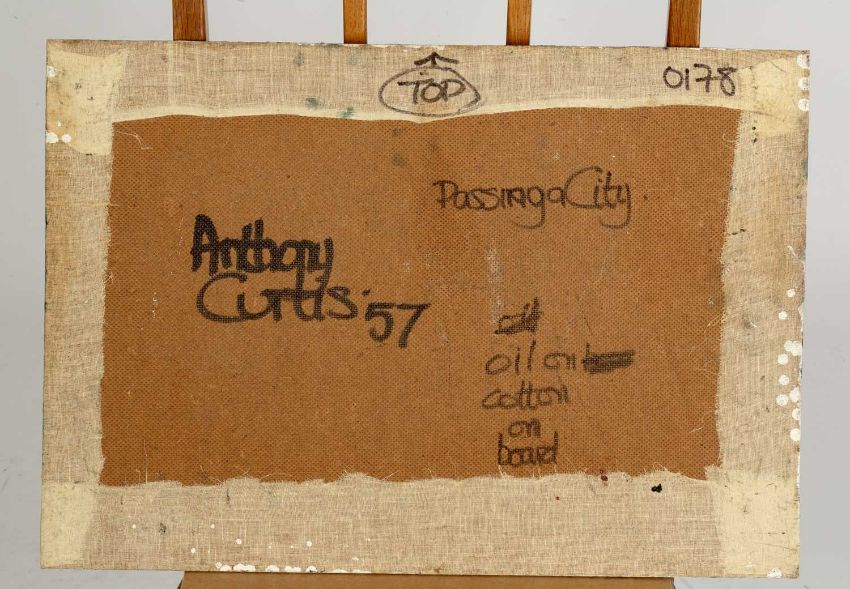 TOP
0178
Passing a City.
Anthony
Curtis. '57
oil on
cotton
on
board